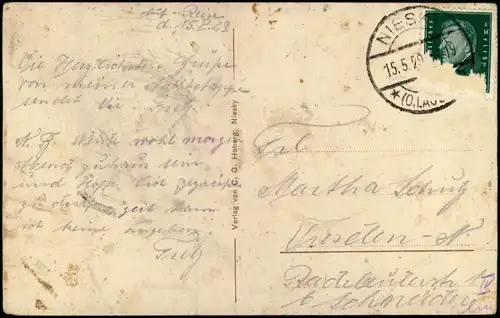 auf Reise
d. 15.5.29
Die Herzlichsten Grüße
von meiner
sendet dir Fritz
N. B. Werde wohl morgen
Abend zuhaus sein
und Hoffe, Dich
zu Zeit kann
ich keine angeben
Fritz
Verlag von C. G. Hoberg, Niesky
NIESKY
15.5.29
*(O.LAUS
Frl
Martha Schulz
Dresden - N
Radebeulerstr
b Schneider
IV